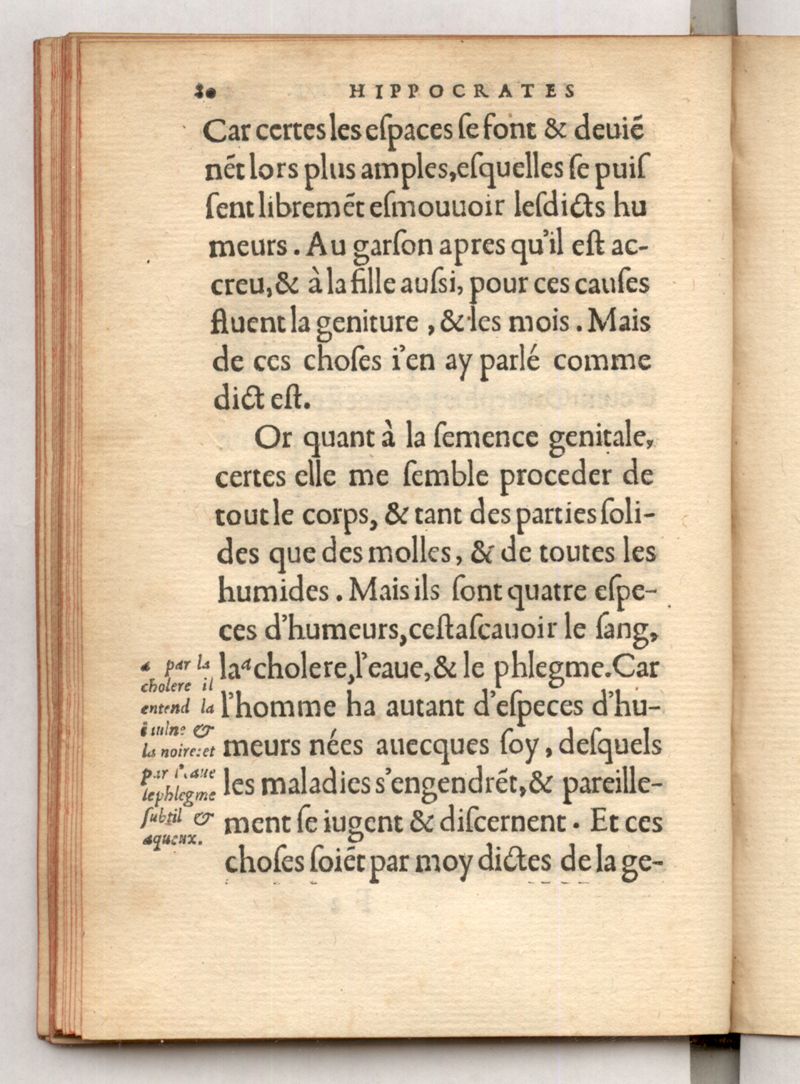 20 HIPPOCRATES
Car certes les eſpaces ſe font & deuiẽ
nẽt lors plus amples, eſquelles ſe puiſ
ſent libremẽt eſmouuoir leſdicts hu
meurs. Au garſon apres qu'il eſt ac-
creu, & à la fille auſsi, pour ces cauſes
fluent la geniture, & les mois. Mais
de ces choſes i'en ay parlé comme
dict eſt.
Or quant à la ſemence genitale,
certes elle me ſemble proceder de
tout le corps, & tant des parties ſoli-
des que des molles, & de toutes les
humides. Mais ils ſont quatre eſpe-
ces d'humeurs, ceſtaſcauoir le ſang,
la a cholere, l'eaue, & le phlegme. Car
l'homme ha autant d'eſpeces d'hu-
meurs nées auecques ſoy, deſquels
les maladies s'engendrẽt, & pareille-
ment ſe iugent & diſcernent. Et ces
choſes ſoiẽt par moy dictes de la ge-
a par la
cholere il
entend la
iaulne &
la noire: et
par l'eaue
le phlegme
ſubtil &
aqueux.